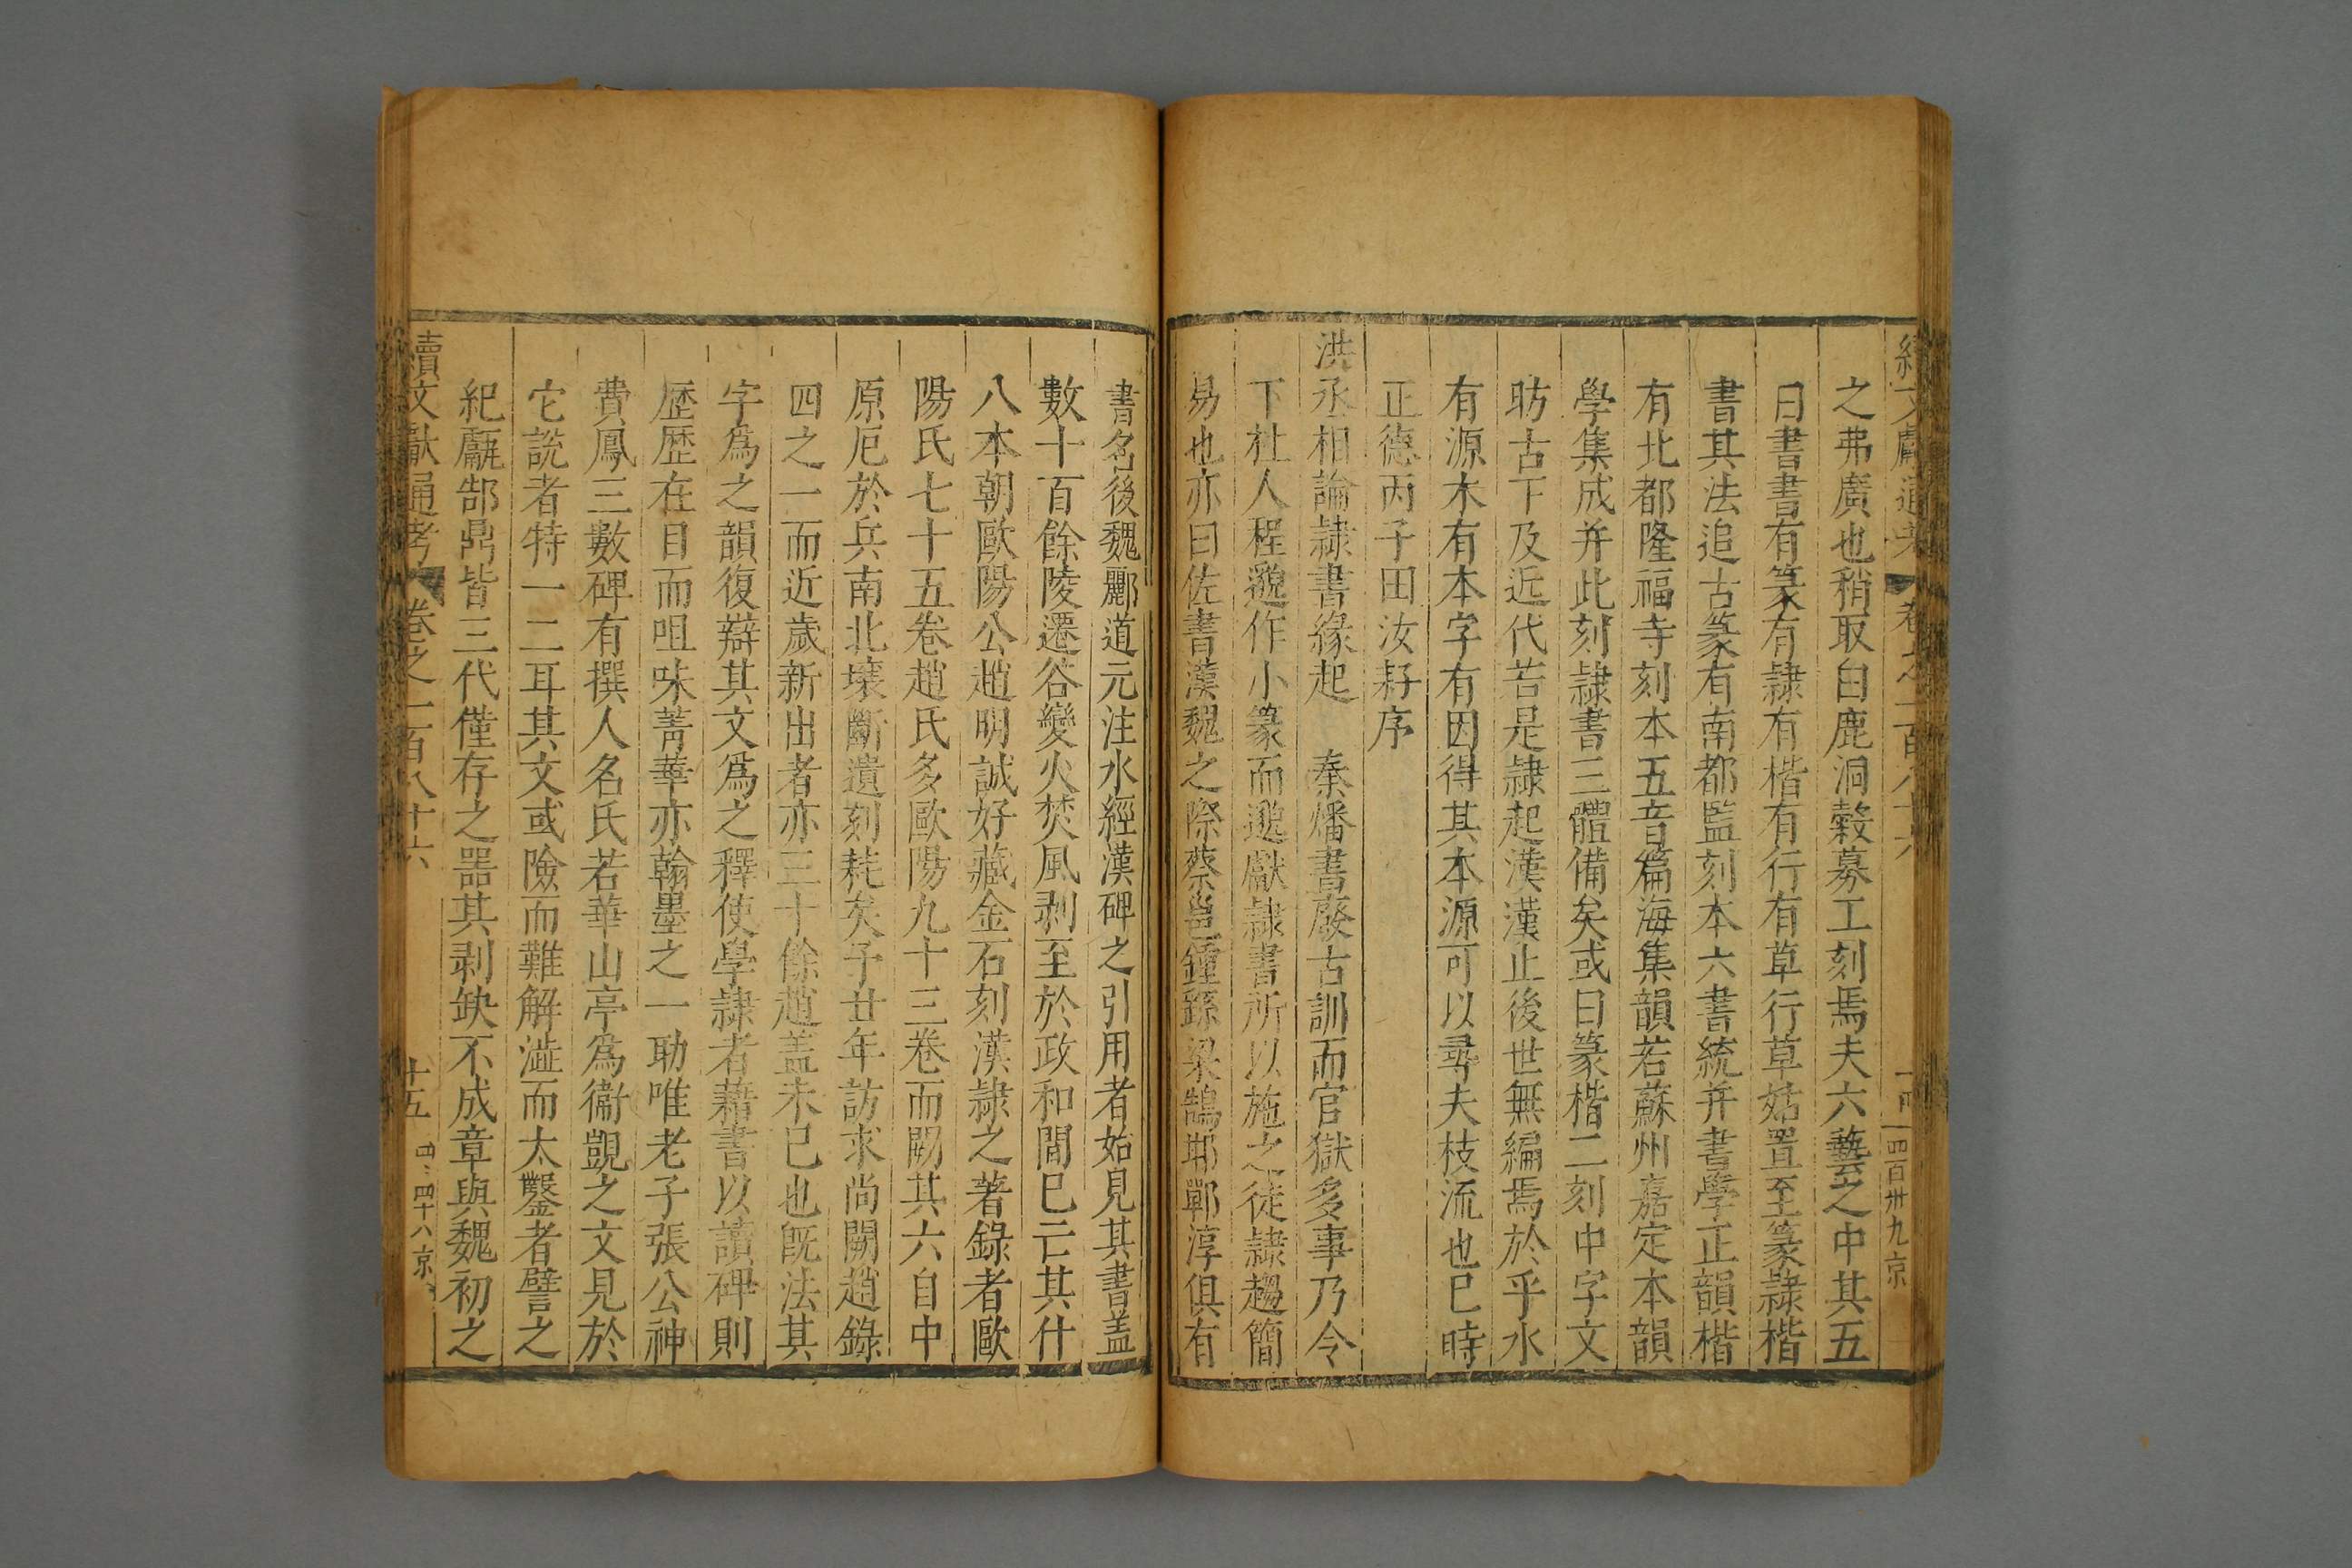 續文獻通考 卷之一百八十六 十四 四百卅九京
之弗廣也稍取白鹿洞穀募工刻焉夫六藝之中其五
曰書書有篆有隷有楷有行有草行草姑置至篆隷楷
書其法追古篆有南都監刻本六書統并書學正韻楷
有北都隆福寺刻本五音篇海集韻若蘇州嘉定本韻
學集成并此刻隷書三體備矣或曰篆楷二刻中字文
昉古下及近代若是隷起漢漢止後世無編焉於乎水
有源木有本字有因得其本源可以尋夫枝流也巳時
正德丙子田汝耔序
洪丞相論隷書緣起 秦燔書廢古訓而官獄多事乃令
下杜人程邈作小篆而邈獻隷書所以施之徒隷趨簡
易也亦曰佐書漢魏之際蔡邕鍾繇梁鵠邯鄲淳俱有
書名後魏酈道元注水經漢碑之引用者始見其書盖
數十百餘陵遷谷變火焚風剥至於政和間巳亡其什
八本朝歐陽公趙明誠好藏金石刻漢隷之著錄者歐
陽氏七十五卷趙氏多歐陽九十三卷而闕其六自中
原厄於兵南北壤斷遺刻耗矣予廿年訪求尚闕趙錄
四之一而近歲新出者亦三十餘趙盖未巳也旣法其
字爲之韻復辯其文爲之釋使學隷者藉書以讀碑則
歷歷在目而咀味菁華亦翰墨之一助唯老子張公神
費鳳三數碑有撰人名氏若華山亭爲衞覬之文見於
它說者特一二耳其文或險而難解澁而太鑿者譬之
紀甗郜鼎皆三代僅存之器其剥缺不成章與魏初之
續文獻通考 卷之一百八十六 十五 四、四十八京